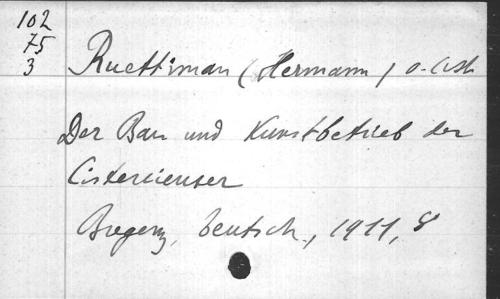 102
75
3
Ruettiman (Hermann) O. Cist
Der Bau und Kunstbetrieb der
Cistercienser
Bregenz, Teutsch., 1911, 8